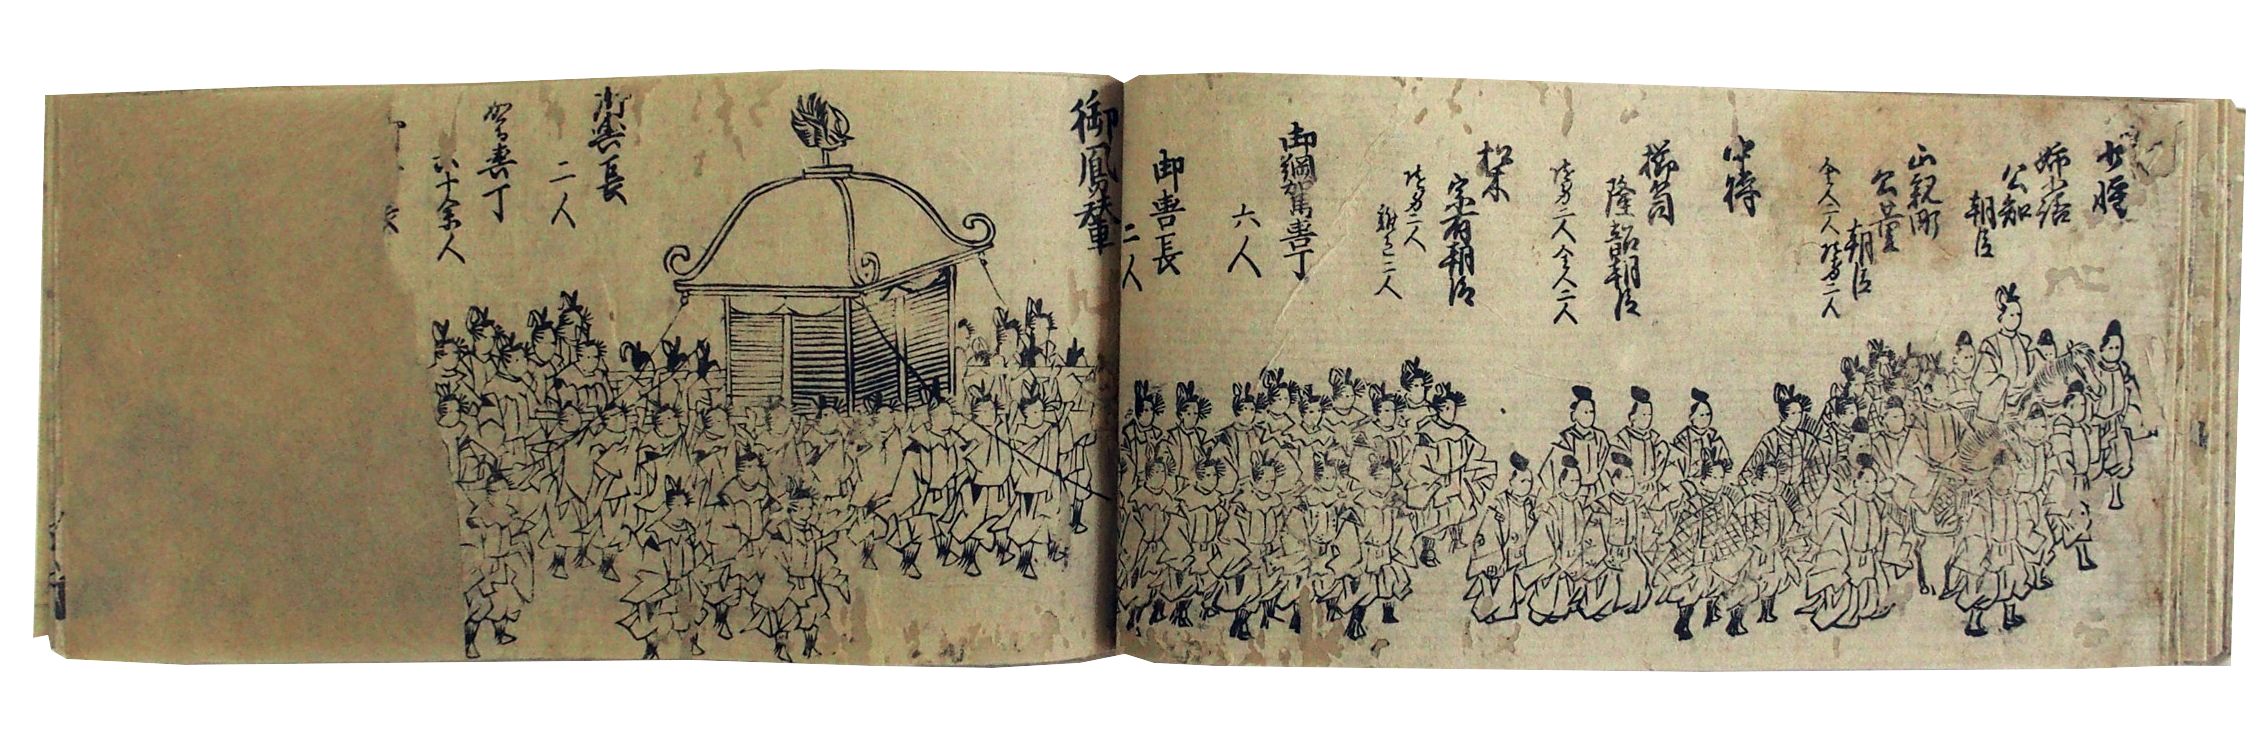 少將
姉小路
公知
朝臣
正親町
公董
朝臣
舎人二人 随身二人
中将
櫛笥
隆韶朝臣
随身二人 舎人二人
松木
宗有朝臣
随身二人
雑色二人
御綱駕輿丁
六人
御輿長
二人
御鳳輦
御輿長
二人
駕輿丁
六十余人